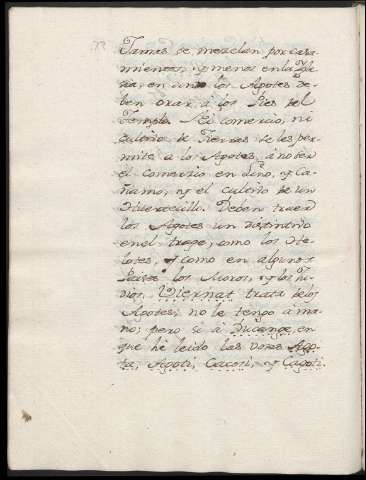 Jamas se mezclan por casa
mientos, y menos en la Igle
sia, en los Agotes de-
ben orar a los Pies del
Templo. Ni comercio, ni
cultivo de Tierras se les per
mite a los Agotes, a no ser
el Comercio en lino, y Ca-
ñamo, y el cultivo de un
Huertecillo. Deben traer
los Agotes un distintivo
en el trage, como los
y como en algunos
Paises los Moros, y los Ju
dios. Viernat trata de los
Agotes; no le tengo a ma-
no; pero si â Ducange, en
que hê leido las voces Ago-
ta, Agoti, Cacori, y Cagoti.